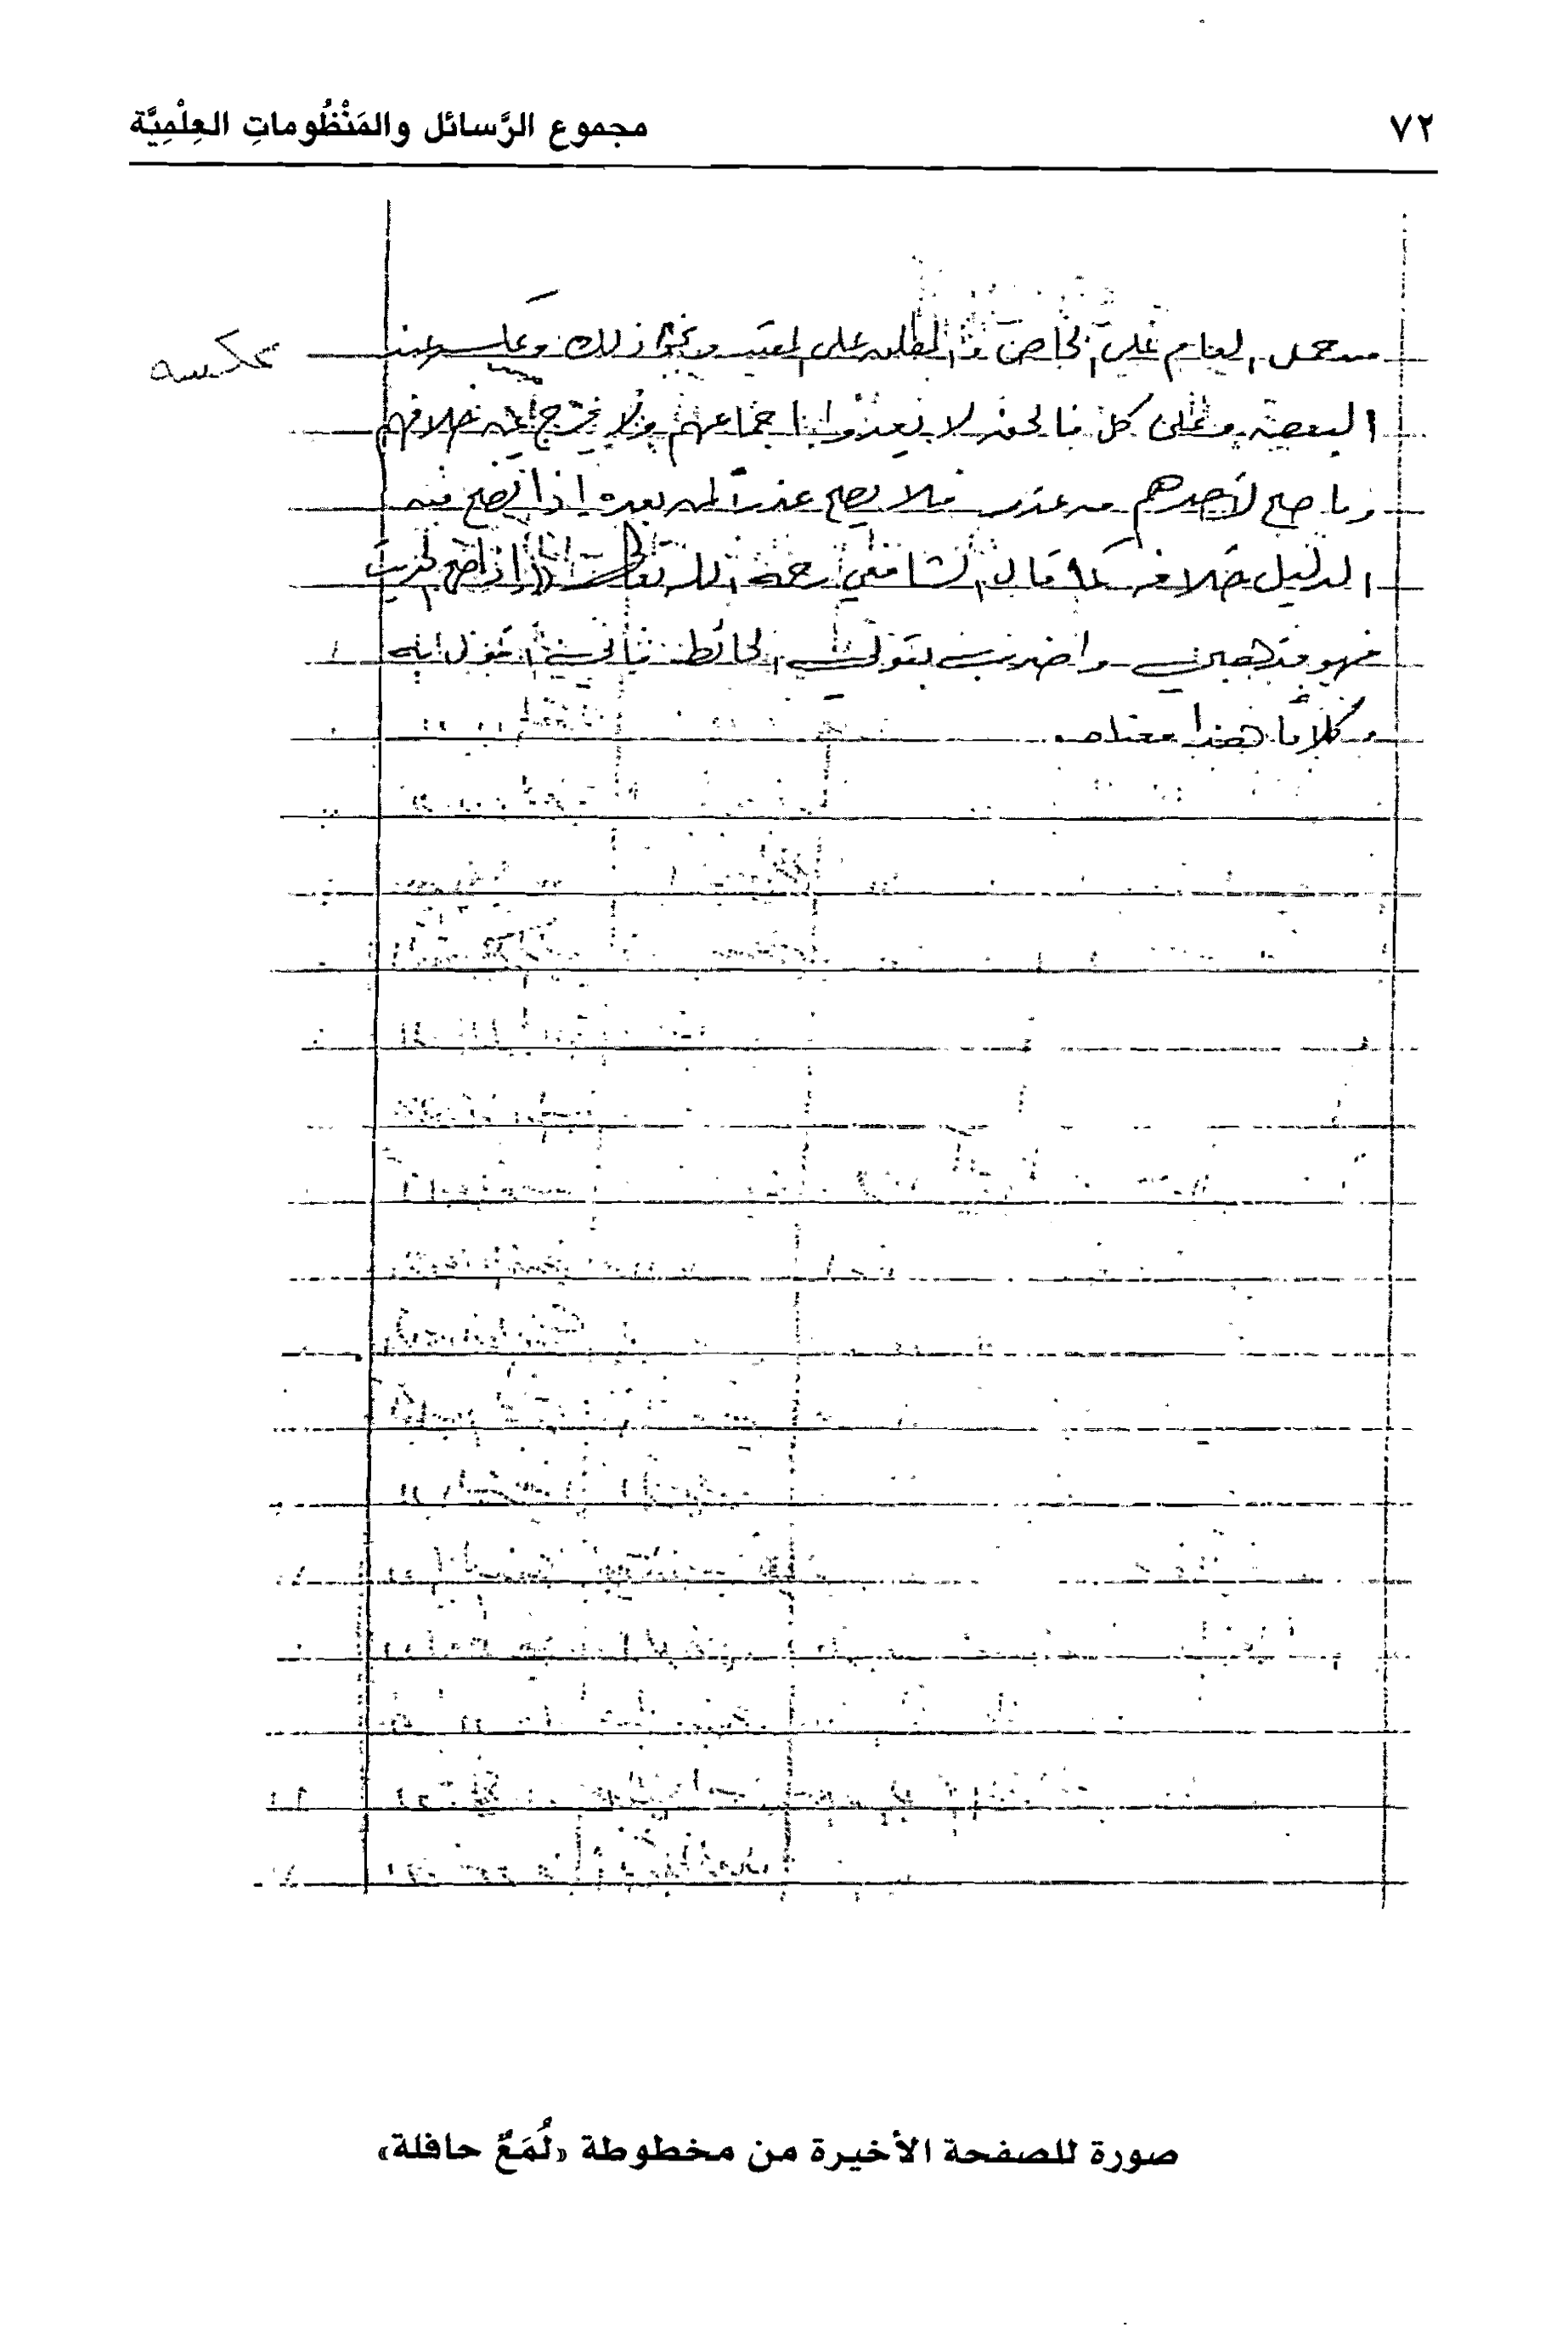 ٧٢
مجموع الرَّسائل والمَنْظُوماتِ العِلْمِيَّة
من حمل العام على الخاص والمطلق على المقيد ونحو ذلك وعكسه عند
عكسه
البعض وعلى كل فالحق لا يعدوا إجماعهم ولا يخرج عن خلافهم
وما صح لأحدهم من عذر فلا يصح عذراً لمن بعده إذا اتضح فيه
الدليل خلافه كما قال الشافعي رحمه الله تعالى «إذا صح الحديث
فهو مذهبي واضربوا بقولي الحائط فإني أقول به
وكلاما هذا معناه.
صورة للصفحة الأخيرة من مخطوطة «لُمَعٌ حافلة»